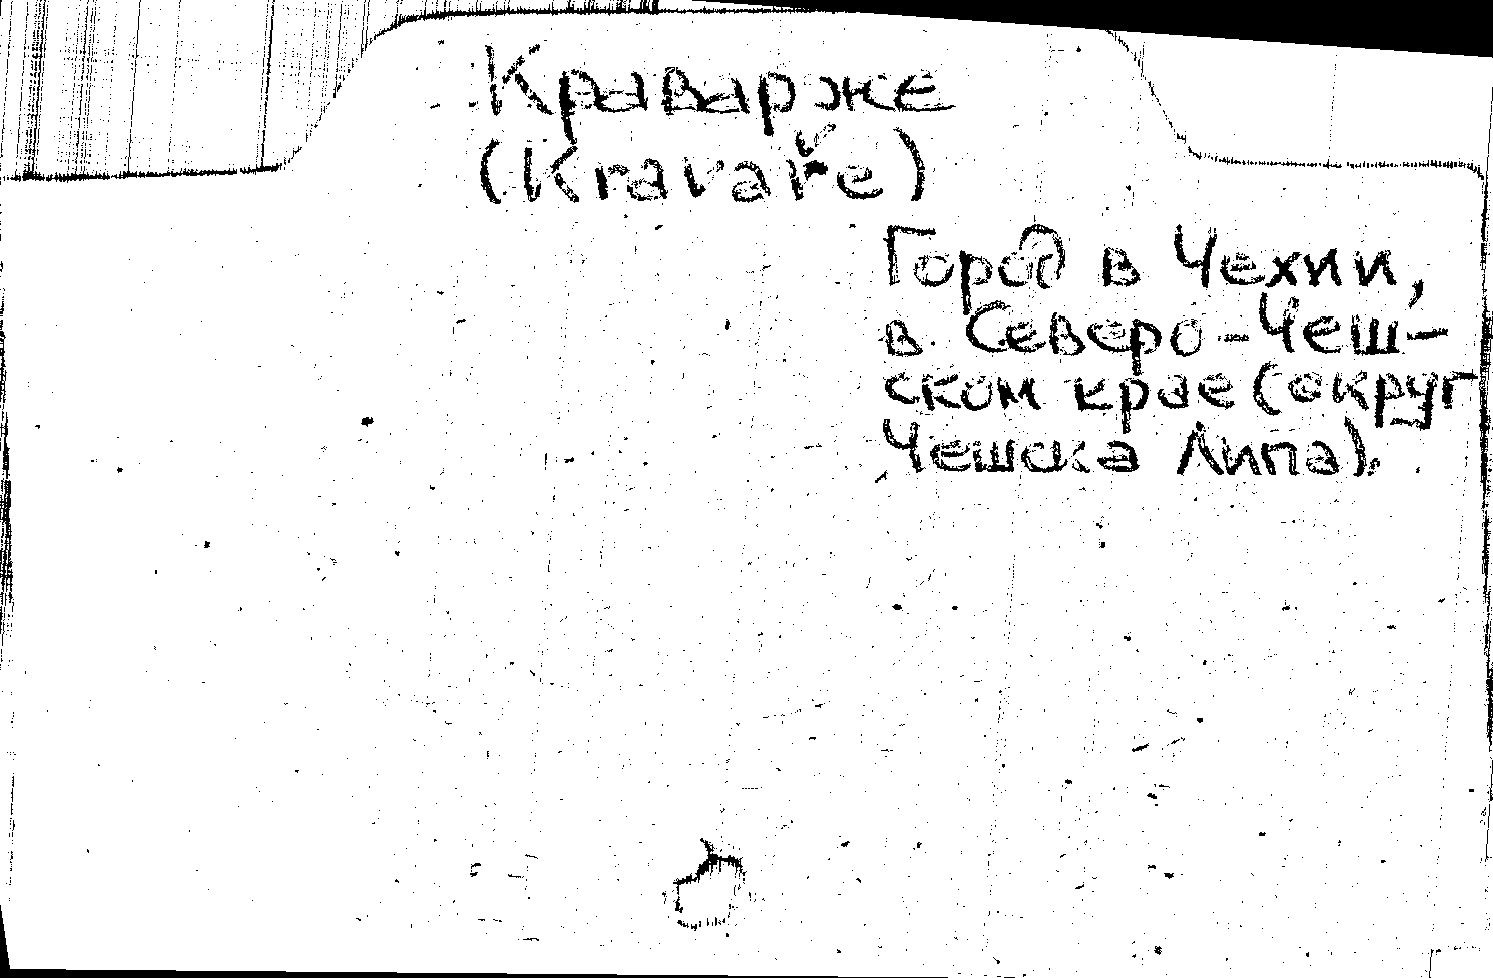 Краварже
(Kravaře)
Город в Чехии,
в Северо-Чеш-
ском крае (округ
Чешска Липа).